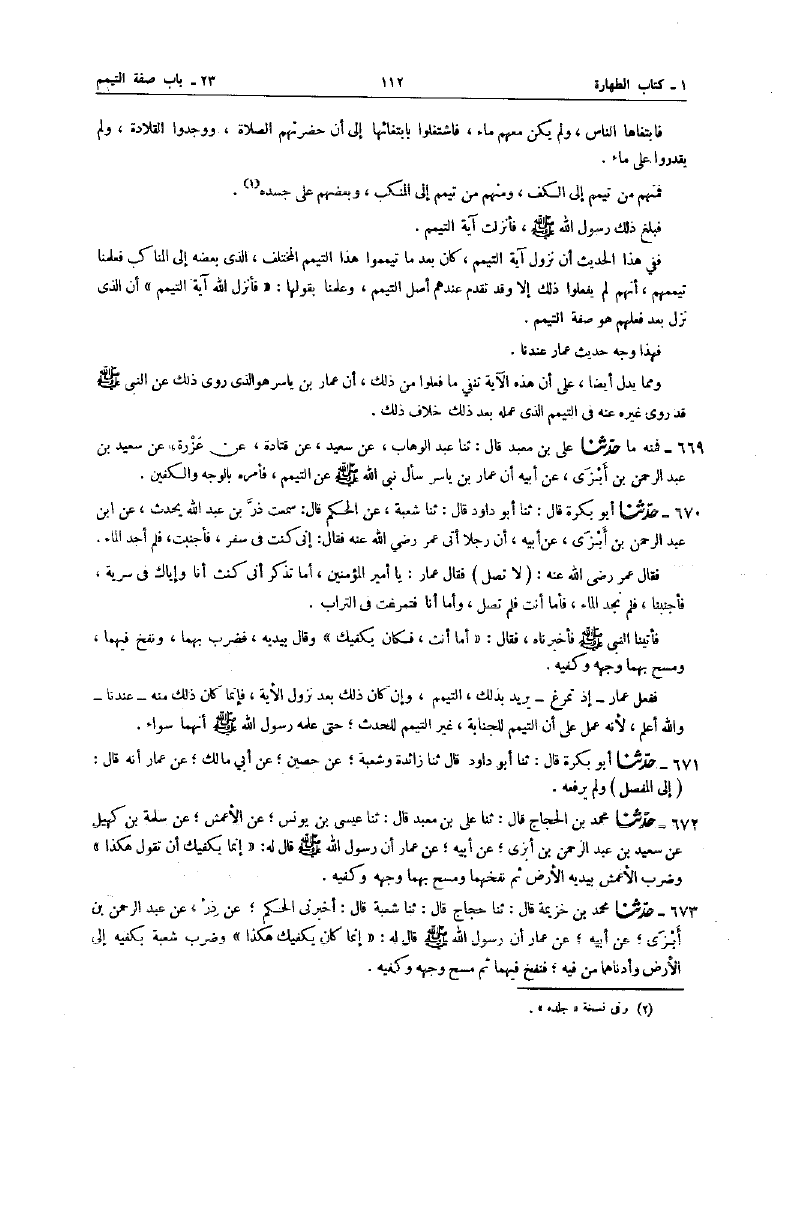 ١ - كتاب الطهارة ١١٢ ٢٣ - باب صفة التيمم
فابتغاها الناس ، ولم يكن معهم ماء ، فاشتغلوا بابتغائها إلى أن حضرتهم الصلاة ، ووجدوا القلادة ، ولم
يقدروا على ماء .
فمنهم من تيمم إلى الكف ، ومنهم من تيمم إلى المنكب ، وبعضهم على جسده(١) .
فبلغ ذلك رسول الله ﷺ ، فأنزلت آية التيمم .
ففى هذا الحديث أن نزول آية التيمم ، كان بعد ما تيمموا هذا التيمم المختلف ، الذى بعضه إلى المناكب فعلمنا
تيممهم ، أنهم لم يفعلوا ذلك إلا وقد تقدم عندهم أصل التيمم ، وعلمنا بقولها : « فأنزل الله آية التيمم » أن الذى
نزل بعد فعلهم هو صفة التيمم .
فهذا وجه حديث عمار عندنا .
ومما يدل أيضا ، على أن هذه الآية تنفي ما فعلوا من ذلك ، أن عمار بن ياسر هو الذى روى ذلك عن النبى ﷺ
قد روى غيره عنه فى التيمم الذى عمله بعد ذلك خلاف ذلك .
٦٦٩ - فمنه ما حدّثنا على بن معبد قال : ثنا عبد الوهاب ، عن سعيد ، عن قتادة ، عن عَزْرة ، عن سعيد بن
عبد الرحمن بن أَبْزَى ، عن أبيه أن عمار بن ياسر سأل نبى الله ﷺ عن التيمم ، فأمره بالوجه والكفين .
٦٧٠ - حدّثنا أبو بكرة قال : ثنا أبو داود قال : ثنا شعبة ، عن الحكم قال: سمعت ذرَّ بن عبد الله يحدث ، عن ابن
عبد الرحمن بن أَبْزَى ، عن أبيه ، أن رجلا أتى عمر رضي الله عنه فقال: إنى كنت فى سفر ، فأجنبت، فلم أجد الماء .
فقال عمر رضى الله عنه : ( لا تصل ) فقال عمار : يا أمير المؤمنين ، أما تذكر أنى كنت أنا وإياك فى سرية ،
فأجنبنا ، فلم نجد الماء ، فأما أنت فلم تصل ، وأما أنا فتمرغت فى التراب .
فأتينا النبى ﷺ فأخبرناه ، فقال : « أما أنت ، فكان يكفيك » وقال بيديه ، فضرب بهما ، ونفخ فيهما ،
ومسح بهما وجهه وكفيه .
ففعل عمار - إذ تمرغ - يريد بذلك ، التيمم ، وإن كان ذلك بعد نزول الأية ، فإنما كان ذلك منه - عندنا -
والله أعلم ، لأنه عمل على أن التيمم للجنابة ، غير التيمم للحدث ؛ حتى علمه رسول الله ﷺ أنهما سواء .
٦٧١ - حدّثنا أبو بكرة قال : ثنا أبو داود قال ثنا زائدة وشعبة ؛ عن حصين ؛ عن أبي مالك ؛ عن عمار أنه قال :
( إلى المفصل ) ولم يرفعه .
٦٧٢ - حدّثنا محمد بن الحجاج قال : ثنا على بن معبد قال : ثنا عيسى بن يونس ؛ عن الأعمش ؛ عن سلمة بن كهيل
عن سعيد بن عبد الرحمن بن أبزى ؛ عن أبيه ؛ عن عمار أن رسول الله ﷺ قال له: « إنما يكفيك أن تقول هكذا »
وضرب الأعمش بيديه الأرض ثم نفخهما ومسح بهما وجهه وكفيه .
٦٧٣ - حدّثنا محمد بن خزيمة قال : ثنا حجاج قال : ثنا شعبة قال : أخبرنى الحكم ؛ عن ذرّ ، عن عبد الرحمن بن
أَبْزَى ؛ عن أبيه ؛ عن عمار أن رسول الله ﷺ قال له : « إنما كان يكفيك هكذا » وضرب شعبة بكفيه إلى
الأرض وأدناها من فيه ؛ فنفخ فيهما ثم مسح وجهه وكفيه .
(٢) وفى نسخة « جلده » .